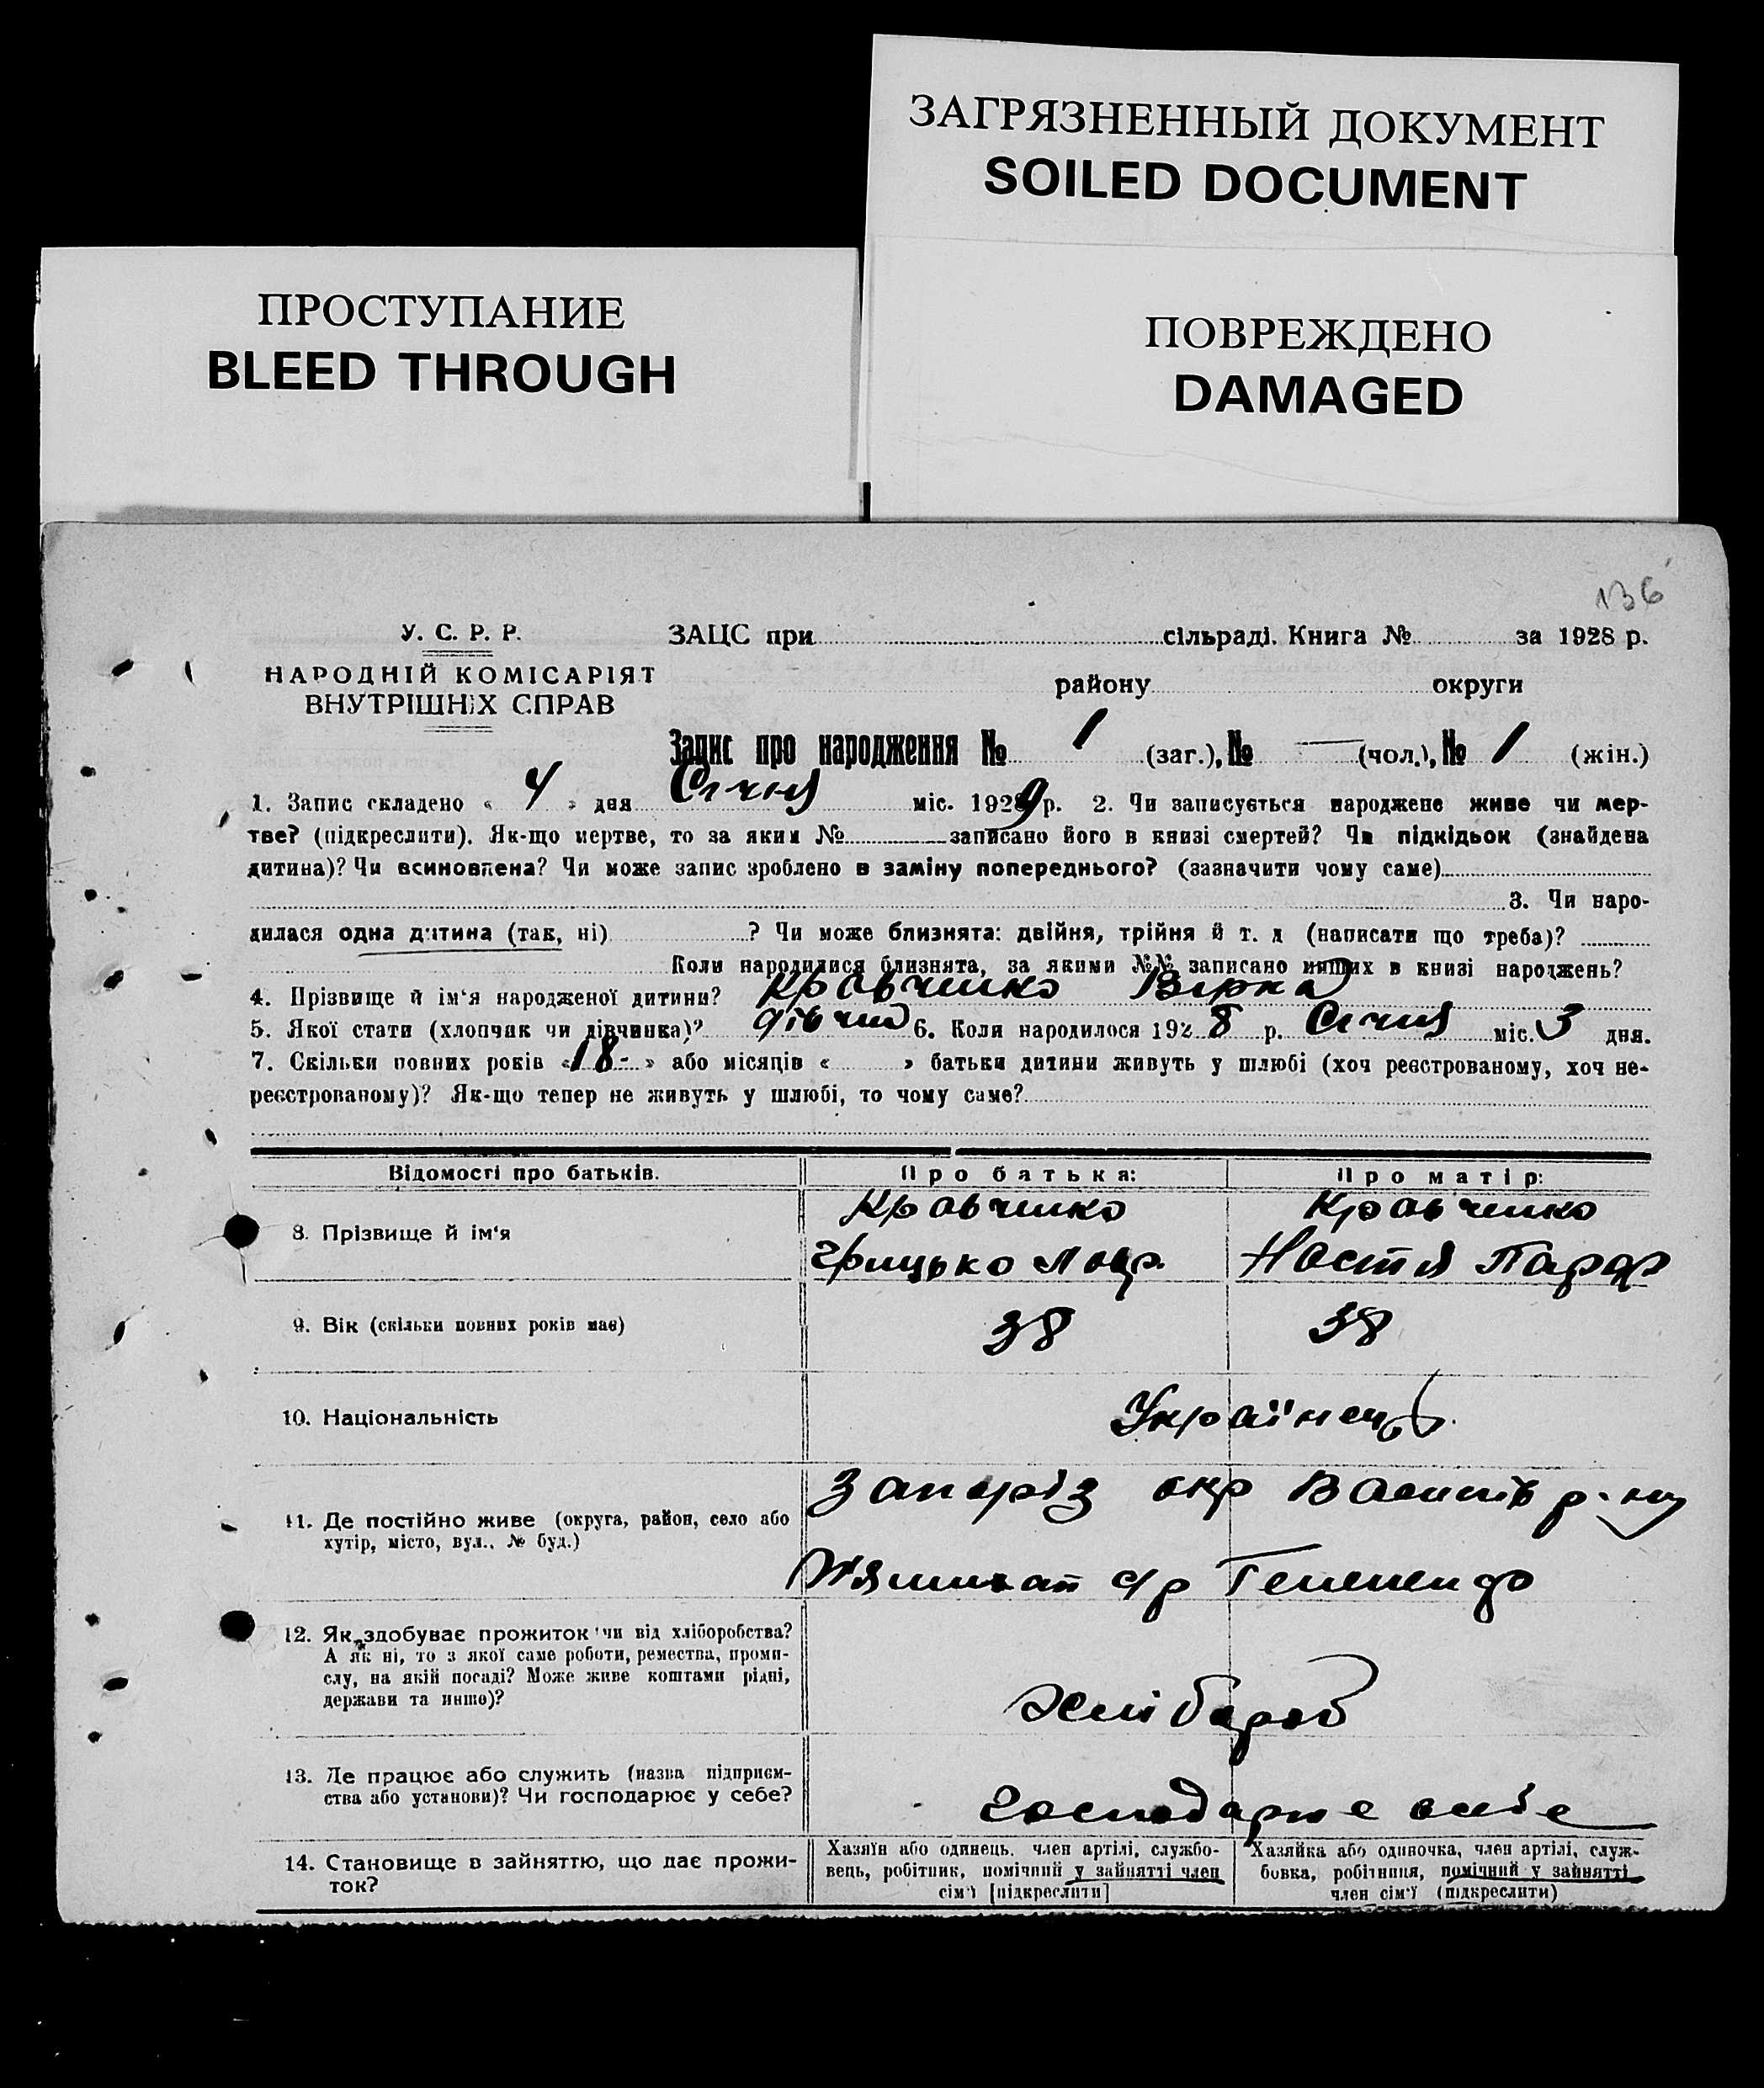 ЗАГРЯЗНЕННЫЙ ДОКУМЕНТ
SOILED DOCUMENT
ПРОСТУПАНИЕ
BLEED THROUGH
ПОВРЕЖДЕНО
DAMAGED
136
У. С. Р. Р.
НАРОДНІЙ КОМІСАРІЯТ
ВНУТРІШНІХ СПРАВ
ЗАЦС при сільраді. Книга № за 1928 р.
району округи
Запис про народження № 1 (заг.), № — (чол.), № 1 (жін.)
1. Запис складено « 4 » дня Січня міс. 1929 р. 2. Чи записується народжене живе чи мер-
тве? (підкреслити). Як-що мертве, то за яким № записано його в книзі смертей? Чи підкідьок (знайдена
дитина)? Чи всиновлена? Чи може запис зроблено в заміну попереднього? (зазначити чому саме)
3. Чи наро-
дилася одна дитина (так, ні) ? Чи може близнята: двійня, трійня й т. д (написати що треба)?
Коли народилися близнята, за якими №№ записано инших в книзі народжень?
4. Прізвище й ім‘я народженої дитини? Кравченко Вірка
5. Якої стати (хлопчик чи дівчинка)? дівчин 6. Коли народилося 1928 р. Січня міс. 3 дня.
7. Скільки повних років «18-» або місяців « » батьки дитини живуть у шлюбі (хоч реєстрованому, хоч не-
реєстрованому)? Як-що тепер не живуть у шлюбі, то чому саме?
Відомості про батьків. Про батька: Про матір:
8. Прізвище й ім‘я
Кравченко Кравченко
Грицько Лавр. Настя Параф
9. Вік (скільки повних років має) 38 38
10. Національність Українець
11. Де постійно живе (округа, район, село або
хутір, місто, вул., № буд.)
Запоріз окр Василів р-ну
с/р
12. Як здобуває прожиток чи від хліборобства?
А як ні, то з якої саме роботи, ремества, проми-
слу, на якій посаді? Може живе коштами рідні,
держави та инше)?
Хлібороб
13. Де працює або служить (назва підприєм-
ства або установи)? Чи господарює у себе?
Господарює
14. Становище в зайняттю, що дає прожи-
ток?
Хазяїн або одинець, член артілі, службо-
вець, робітник, помічний у зайнятті член
сім‘ї [підкреслити]
Хазяйка або одиночка, член артілі, служ-
бовка, робітниця, помічний у зайнятті
член сім‘ї (підкреслити)